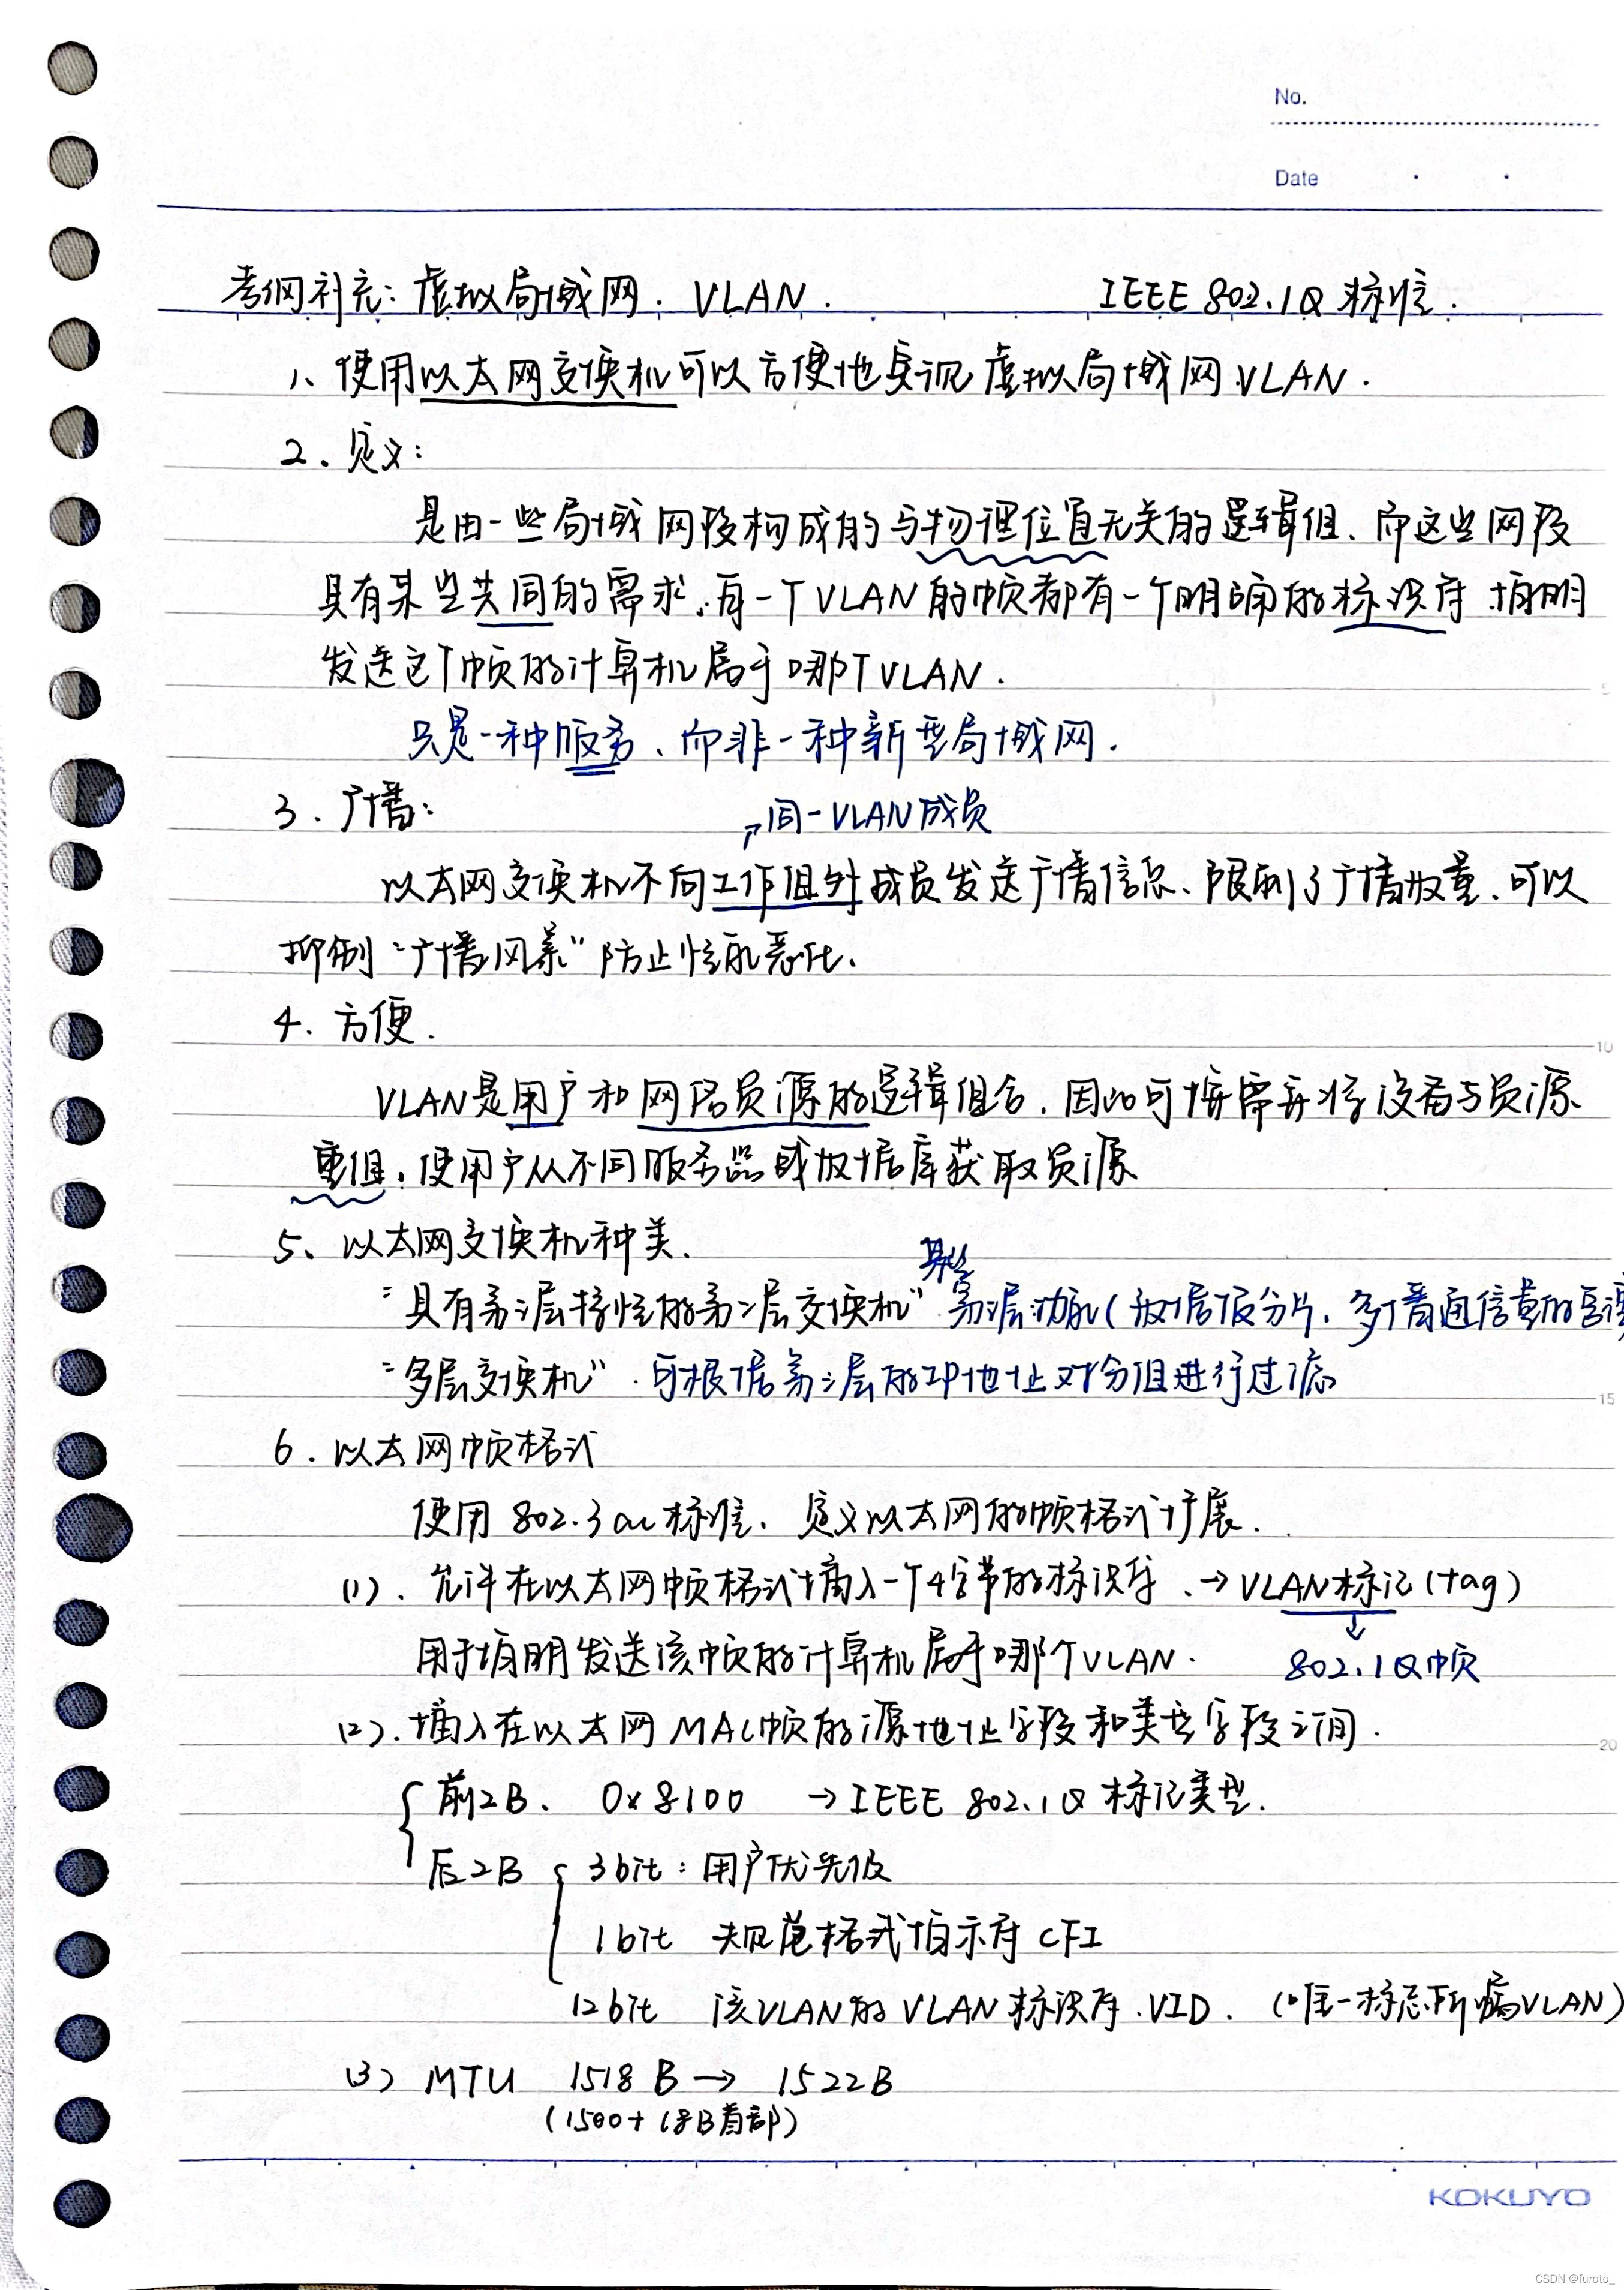 No.
Date
考纲补充：虚拟局域网．VLAN． IEEE 802.1Q 标准．
1、使用以太网交换机可以方便地实现虚拟局域网VLAN．
2．定义：
是由一些局域网段构成的与物理位置无关的逻辑组、而这些网段
具有某些共同的需求．每一个VLAN的帧都有一个明确的标识符 指明
发送这个帧的计算机属于哪个VLAN．
只是一种服务、而非一种新型局域网．
3．广播：
↗同一VLAN成员
以太网交换机不向工作组外成员发送广播信息、限制了广播数量、可以
抑制“广播风暴”防止性能恶化、
4．方便．
VLAN是用户和网络资源的逻辑组合．因此可按需要将设备与资源
重组，使用户从不同服务器或数据库获取资源
5、以太网交换机种类．
具
“具有第三层特性的第二层交换机” 第三层功能（数据报分片．多播通信量的管
“多层交换机”．可根据第三层的IP地址对分组进行过滤
6．以太网帧格式
使用 802.3ac标准．定义以太网的帧格式扩展．
(1)．允许在以太网帧格式插入一个4字节的标识符．→ VLAN标记 (tag)
↓
用于指明发送该帧的计算机属于哪个VLAN． 802.1Q帧
(2)．插入在以太网 MAC帧的源地址字段和类型字段之间．
前2B． 0x8100 → IEEE 802.1Q 标记类型．
后2B 3bit：用户优先级
1bit 规范格式指示符 CFI
12bit 该VLAN的 VLAN标识符．VID．（唯一标志所属VLAN）
(3) MTU 1518 B → 1522B
（1500+18B首部）
KOKUYO
CSDN @furoto_